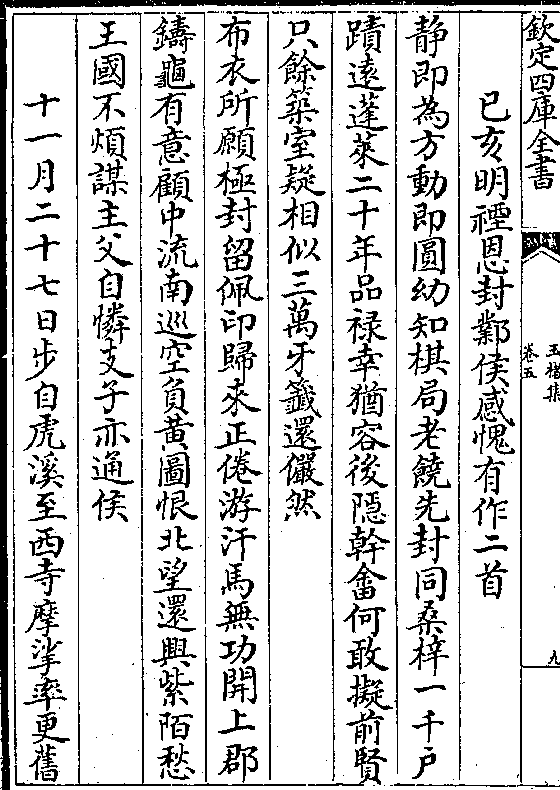 欽定四庫全書
玉楮集
卷五
九
已亥明禋恩封鄴侯感愧有作二首
静即為方動即圓幼知棋局老饒先封同桑梓一千戶
蹟遠蓬萊二十年品禄幸猶容後隱幹畬何敢擬前賢
只餘築室疑相似三萬牙籤還儼然
布衣所願極封留佩印歸來正倦游汗馬無功開上郡
鑄龜有意顧中流南巡空負黄圖恨北望還興紫陌愁
王國不煩謀主父自憐支子亦通侯
十一月二十七日步自虎溪至西寺摩挲率更舊